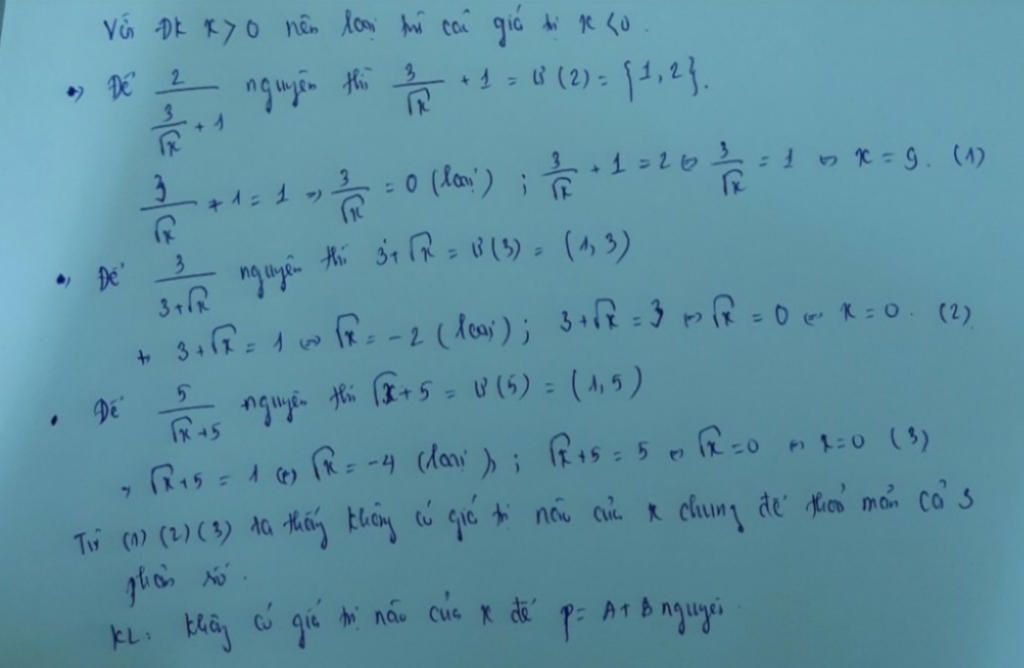 Với ĐK x > 0 nên loại trừ các giá trị x < 0.
•) Để \frac{2}{\frac{3}{\sqrt{x}} + 1} nguyên thì \frac{3}{\sqrt{x}} + 1 = Ư(2) = {1,2}.
\frac{3}{\sqrt{x}} + 1 = 1 → \frac{3}{\sqrt{x}} = 0 (loại) ; \frac{3}{\sqrt{x}} + 1 = 2 ⇔ \frac{3}{\sqrt{x}} = 1 ⇔ x = 9. (1)
•) Để \frac{3}{3+\sqrt{x}} nguyên thì 3+\sqrt{x} = Ư(3) = (1,3)
+) 3+\sqrt{x} = 1 ⇔ \sqrt{x} = -2 (loại) ; 3+\sqrt{x} = 3 ⇔ \sqrt{x} = 0 ⇔ x = 0. (2)
• Để \frac{5}{\sqrt{x}+5} nguyên thì \sqrt{x}+5 = Ư(5) = (1,5)
→ \sqrt{x}+5 = 1 ⇔ \sqrt{x} = -4 (loại) ; \sqrt{x}+5 = 5 ⇔ \sqrt{x} = 0 ⇔ x=0 (3)
Từ (1) (2) (3) ta thấy không có giá trị nào của x chung để thoả mãn cả 3
phân số.
KL: không có giá trị nào của x để p = A + B nguyên